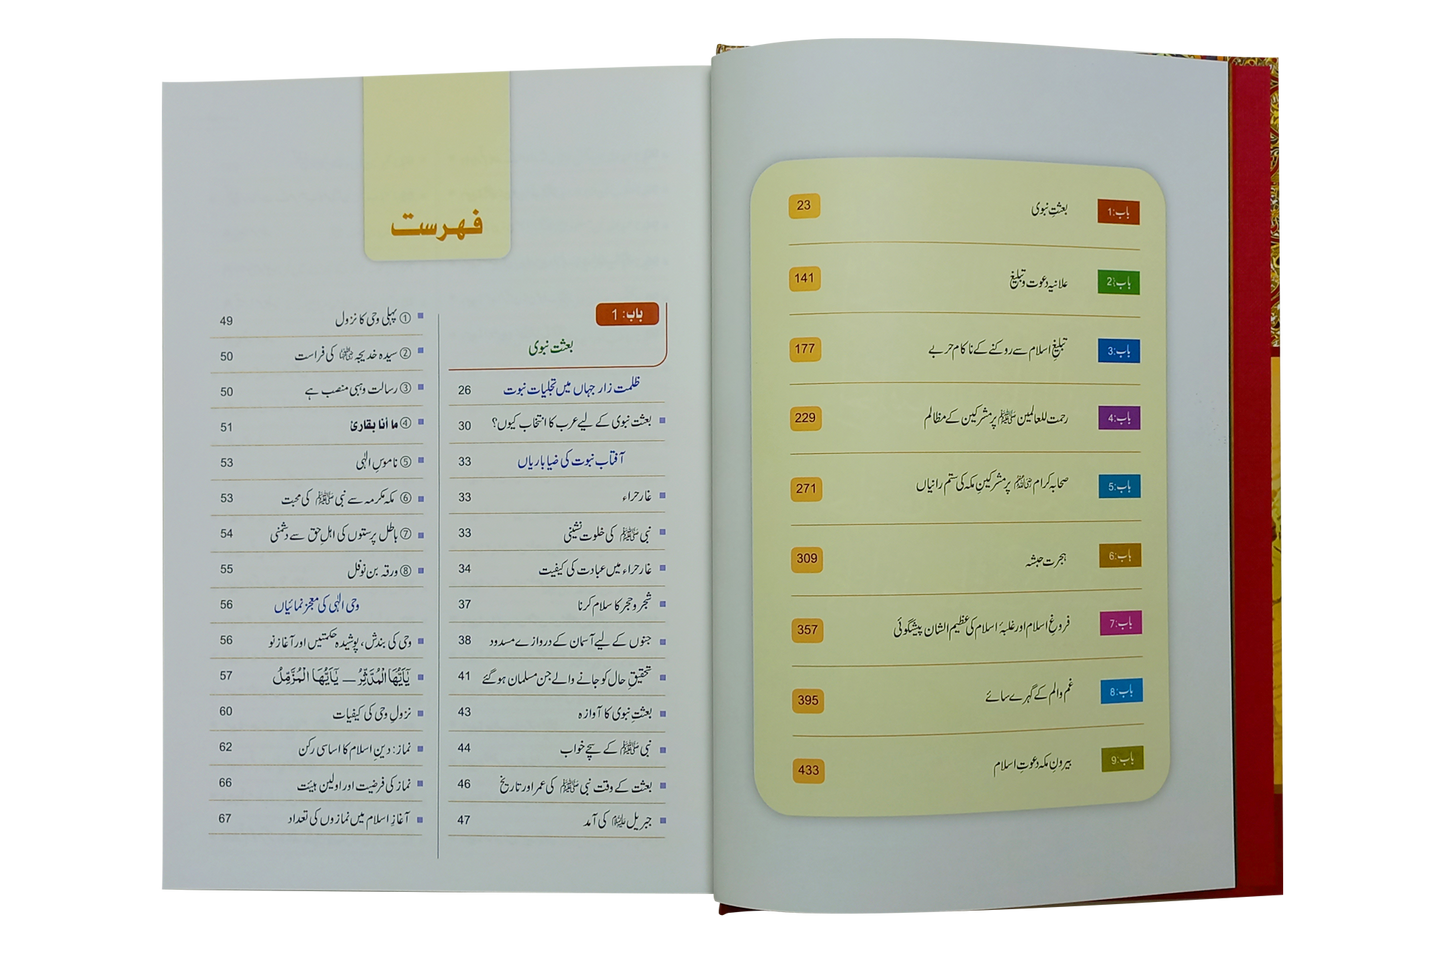 باب:1 بعثتِ نبوی 23
باب:2 علانیہ دعوت و تبلیغ 141
باب:3 تبلیغِ اسلام سے روکنے کے ناکام حربے 177
باب:4 رحمت للعالمین ﷺ پر مشرکین کے مظالم 229
باب:5 صحابہ کرام پر مشرکینِ مکہ کی ستم رانیاں 271
باب:6 ہجرت حبشہ 309
باب:7 فروغِ اسلام اور غلبۂ اسلام کی عظیم الشان پیشگوئی 357
باب:8 غم و الم کے گہرے سائے 395
باب:9 بیرونِ مکہ دعوتِ اسلام 433
فہرست
باب: 1
بعثت نبوی
ظلمت زار جہاں میں تجلیات نبوت 26
بعثت نبوی کے لیے عرب کا انتخاب کیوں؟ 30
آفتاب نبوت کی ضیا باریاں 33
غار حراء 33
نبی ﷺ کی خلوت نشینی 33
غار حراء میں عبادت کی کیفیت 34
شجر و حجر کا سلام کرنا 37
جنوں کے لیے آسمان کے دروازے مسدود 38
تحقیقِ حال کو جانے والے جن مسلمان ہو گئے 41
بعثتِ نبوی کا آوازہ 43
نبی ﷺ کے سچے خواب 44
بعثت کے وقت نبی ﷺ کی عمر اور تاریخ 46
جبریل کی آمد 47
① پہلی وحی کا نزول 49
② سیدہ خدیجہ کی فراست 50
③ رسالت وہبی منصب ہے 50
④ ما أنا بقارئ 51
⑤ ناموسِ الٰہی 53
⑥ مکہ مکرمہ سے نبی ﷺ کی محبت 53
⑦ باطل پرستوں کی اہلِ حق سے دشمنی 54
⑧ ورقہ بن نوفل 55
وحی الٰہی کی معجز نمائیاں 56
وحی کی بندش، پوشیدہ حکمتیں اور آغازِ نو 56
يٰٓاَيُّهَا الْمُدَّثِّرُ — يٰٓاَيُّهَا الْمُزَّمِّلُ 57
نزولِ وحی کی کیفیات 60
نماز: دینِ اسلام کا اساسی رکن 62
نماز کی فرضیت اور اولین ہیئت 66
آغازِ اسلام میں نمازوں کی تعداد 67